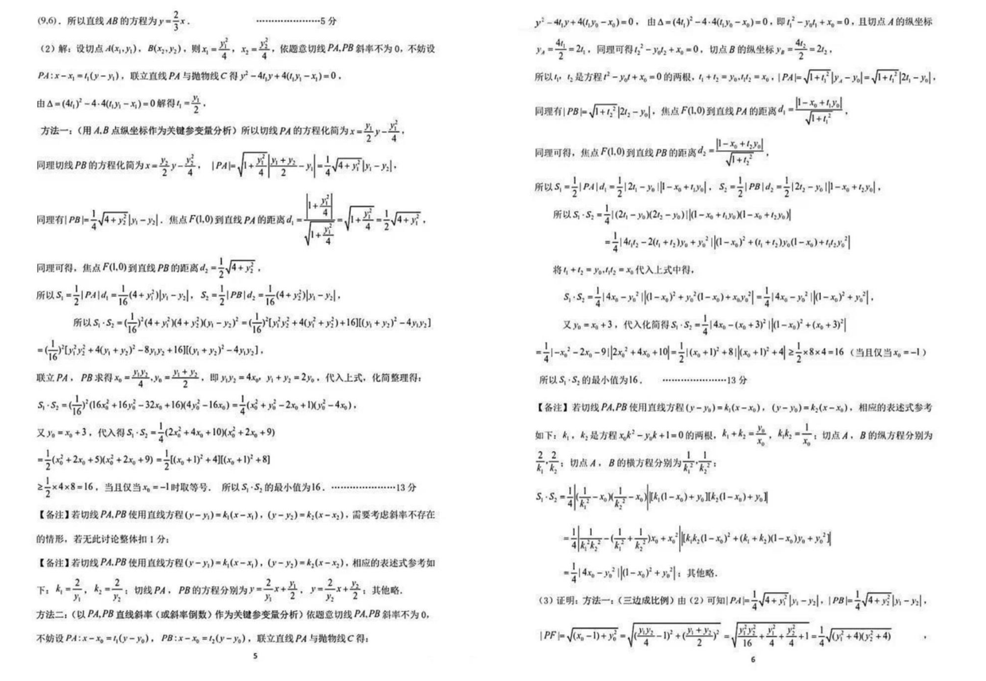 (9,6)．所以直线 AB 的方程为 y=2/3 x． ………………5 分
（2）解：设切点 A(x₁,y₁)，B(x₂,y₂)，则 x₁=y₁²/4，x₂=y₂²/4，依题意切线 PA,PB 斜率不为 0，不妨设
PA:x−x₁=t₁(y−y₁)，联立直线 PA 与抛物线 C 得 y²−4t₁y+4(t₁y₁−x₁)=0，
由 Δ=(4t₁)²−4·4(t₁y₁−x₁)=0 解得 t₁=y₁/2，
方法一：（用 A,B 点纵坐标作为关键参变量分析）所以切线 PA 的方程化简为 x=y₁/2 y−y₁²/4，
同理切线 PB 的方程化简为 x=y₂/2 y−y₂²/4， |PA|=√(1+y₁²/4)|(y₁+y₂)/2−y₁|=1/4 √(4+y₁²)|y₁−y₂|，
同理有 |PB|=1/4 √(4+y₂²)|y₁−y₂|．焦点 F(1,0) 到直线 PA 的距离 d₁=|1+y₁²/4|/√(1+y₁²/4)=√(1+y₁²/4)=1/2 √(4+y₁²)，
同理可得，焦点 F(1,0) 到直线 PB 的距离 d₂=1/2 √(4+y₂²)，
所以 S₁=1/2|PA|d₁=1/16(4+y₁²)|y₁−y₂|，S₂=1/2|PB|d₂=1/16(4+y₂²)|y₁−y₂|，
所以 S₁·S₂=(1/16)²(4+y₁²)(4+y₂²)(y₁−y₂)²=(1/16)²[y₁²y₂²+4(y₁²+y₂²)+16][(y₁+y₂)²−4y₁y₂]
=(1/16)²[y₁²y₂²+4(y₁+y₂)²−8y₁y₂+16][(y₁+y₂)²−4y₁y₂]，
联立 PA，PB 求得 x₀=y₁y₂/4,y₀=(y₁+y₂)/2，即 y₁y₂=4x₀, y₁+y₂=2y₀，代入上式，化简整理得：
S₁·S₂=(1/16)²(16x₀²+16y₀²−32x₀+16)(4y₀²−16x₀)=1/4(x₀²+y₀²−2x₀+1)(y₀²−4x₀)，
又 y₀=x₀+3，代入得 S₁·S₂=1/4(2x₀²+4x₀+10)(x₀²+2x₀+9)
=1/2(x₀²+2x₀+5)(x₀²+2x₀+9)=1/2[(x₀+1)²+4][(x₀+1)²+8]
≥1/2×4×8=16，当且仅当 x₀=−1 时取等号． 所以 S₁·S₂ 的最小值为 16．………………13 分
【备注】若切线 PA,PB 使用直线方程 (y−y₁)=k₁(x−x₁)，(y−y₂)=k₂(x−x₂)，需要考虑斜率不存在
的情形，若无此讨论整体扣 1 分；
【备注】若切线 PA,PB 使用直线方程 (y−y₁)=k₁(x−x₁)，(y−y₂)=k₂(x−x₂)，相应的表达式参考如
下：k₁=2/y₁，k₂=2/y₂；切线 PA，PB 的方程分别为 y=2/y₁ x+y₁/2，y=2/y₂ x+y₂/2；其他略．
方法二：（以 PA,PB 直线斜率（或斜率倒数）作为关键参变量分析）依题意切线 PA,PB 斜率不为 0，
不妨设 PA:x−x₀=t₁(y−y₀)，PB:x−x₀=t₂(y−y₀)，联立直线 PA 与抛物线 C 得：
5
y²−4t₁y+4(t₁y₀−x₀)=0， 由 Δ=(4t₁)²−4·4(t₁y₀−x₀)=0，即 t₁²−y₀t₁+x₀=0，且切点 A 的纵坐标
y_A=4t₁/2=2t₁，同理可得 t₂²−y₀t₂+x₀=0，切点 B 的纵坐标 y_B=4t₂/2=2t₂，
所以 t₁，t₂ 是方程 t²−y₀t+x₀=0 的两根，t₁+t₂=y₀,t₁t₂=x₀，|PA|=√(1+t₁²)|y_A−y₀|=√(1+t₁²)|2t₁−y₀|，
同理有 |PB|=√(1+t₂²)|2t₂−y₀|，焦点 F(1,0) 到直线 PA 的距离 d₁=|1−x₀+t₁y₀|/√(1+t₁²)，
同理可得，焦点 F(1,0) 到直线 PB 的距离 d₂=|1−x₀+t₂y₀|/√(1+t₂²)，
所以 S₁=1/2|PA|d₁=1/2|2t₁−y₀||1−x₀+t₁y₀|，S₂=1/2|PB|d₂=1/2|2t₂−y₀||1−x₀+t₂y₀|，
所以 S₁·S₂=1/4|(2t₁−y₀)(2t₂−y₀)||(1−x₀+t₁y₀)(1−x₀+t₂y₀)|
=1/4|4t₁t₂−2(t₁+t₂)y₀+y₀²||(1−x₀)²+(t₁+t₂)y₀(1−x₀)+t₁t₂y₀²|
将 t₁+t₂=y₀,t₁t₂=x₀ 代入上式中得，
S₁·S₂=1/4|4x₀−y₀²||(1−x₀)²+y₀²(1−x₀)+x₀y₀²|=1/4|4x₀−y₀²||(1−x₀)²+y₀²|，
又 y₀=x₀+3，代入化简得 S₁·S₂=1/4|4x₀−(x₀+3)²||(1−x₀)²+(x₀+3)²|
=1/4|−x₀²−2x₀−9||2x₀²+4x₀+10|=1/2|(x₀+1)²+8||(x₀+1)²+4|≥1/2×8×4=16（当且仅当 x₀=−1）
所以 S₁·S₂ 的最小值为 16． ………………13 分
【备注】若切线 PA,PB 使用直线方程 (y−y₀)=k₁(x−x₀)，(y−y₀)=k₂(x−x₀)，相应的表达式参考
如下：k₁，k₂ 是方程 x₀k²−y₀k+1=0 的两根，k₁+k₂=y₀/x₀，k₁k₂=1/x₀；切点 A，B 的纵方程分别为
2/k₁,2/k₂；切点 A，B 的横方程分别为 1/k₁²,1/k₂²；
S₁·S₂=1/4|(1/k₁²−x₀)(1/k₂²−x₀)||[k₁(1−x₀)+y₀][k₂(1−x₀)+y₀]|
=1/4|1/(k₁²k₂²)−(1/k₁²+1/k₂²)x₀+x₀²||k₁k₂(1−x₀)²+(k₁+k₂)(1−x₀)y₀+y₀²|
=1/4|4x₀−y₀²||(1−x₀)²+y₀²|；其他略．
（3）证明：方法一：（三边成比例）由（2）可知 |PA|=1/4 √(4+y₁²)|y₁−y₂|，|PB|=1/4 √(4+y₂²)|y₁−y₂|，
|PF|=√((x₀−1)+y₀²)=√((y₁y₂/4−1)²+((y₁+y₂)/2)²)=√(y₁²y₂²/16+y₁²/4+y₂²/4+1)=1/4 √((y₁²+4)(y₂²+4))，
6